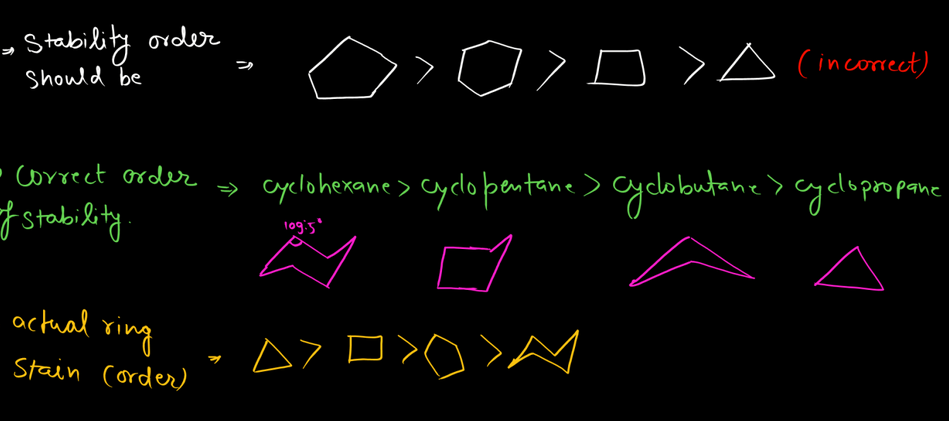 ⇒ Stability order
should be ⇒ > > > (incorrect)
correct order
of stability. ⇒ cyclohexane > cyclopentane > cyclobutane > cyclopropane
109.5°
actual ring
Stain (order) ⇒ > > >